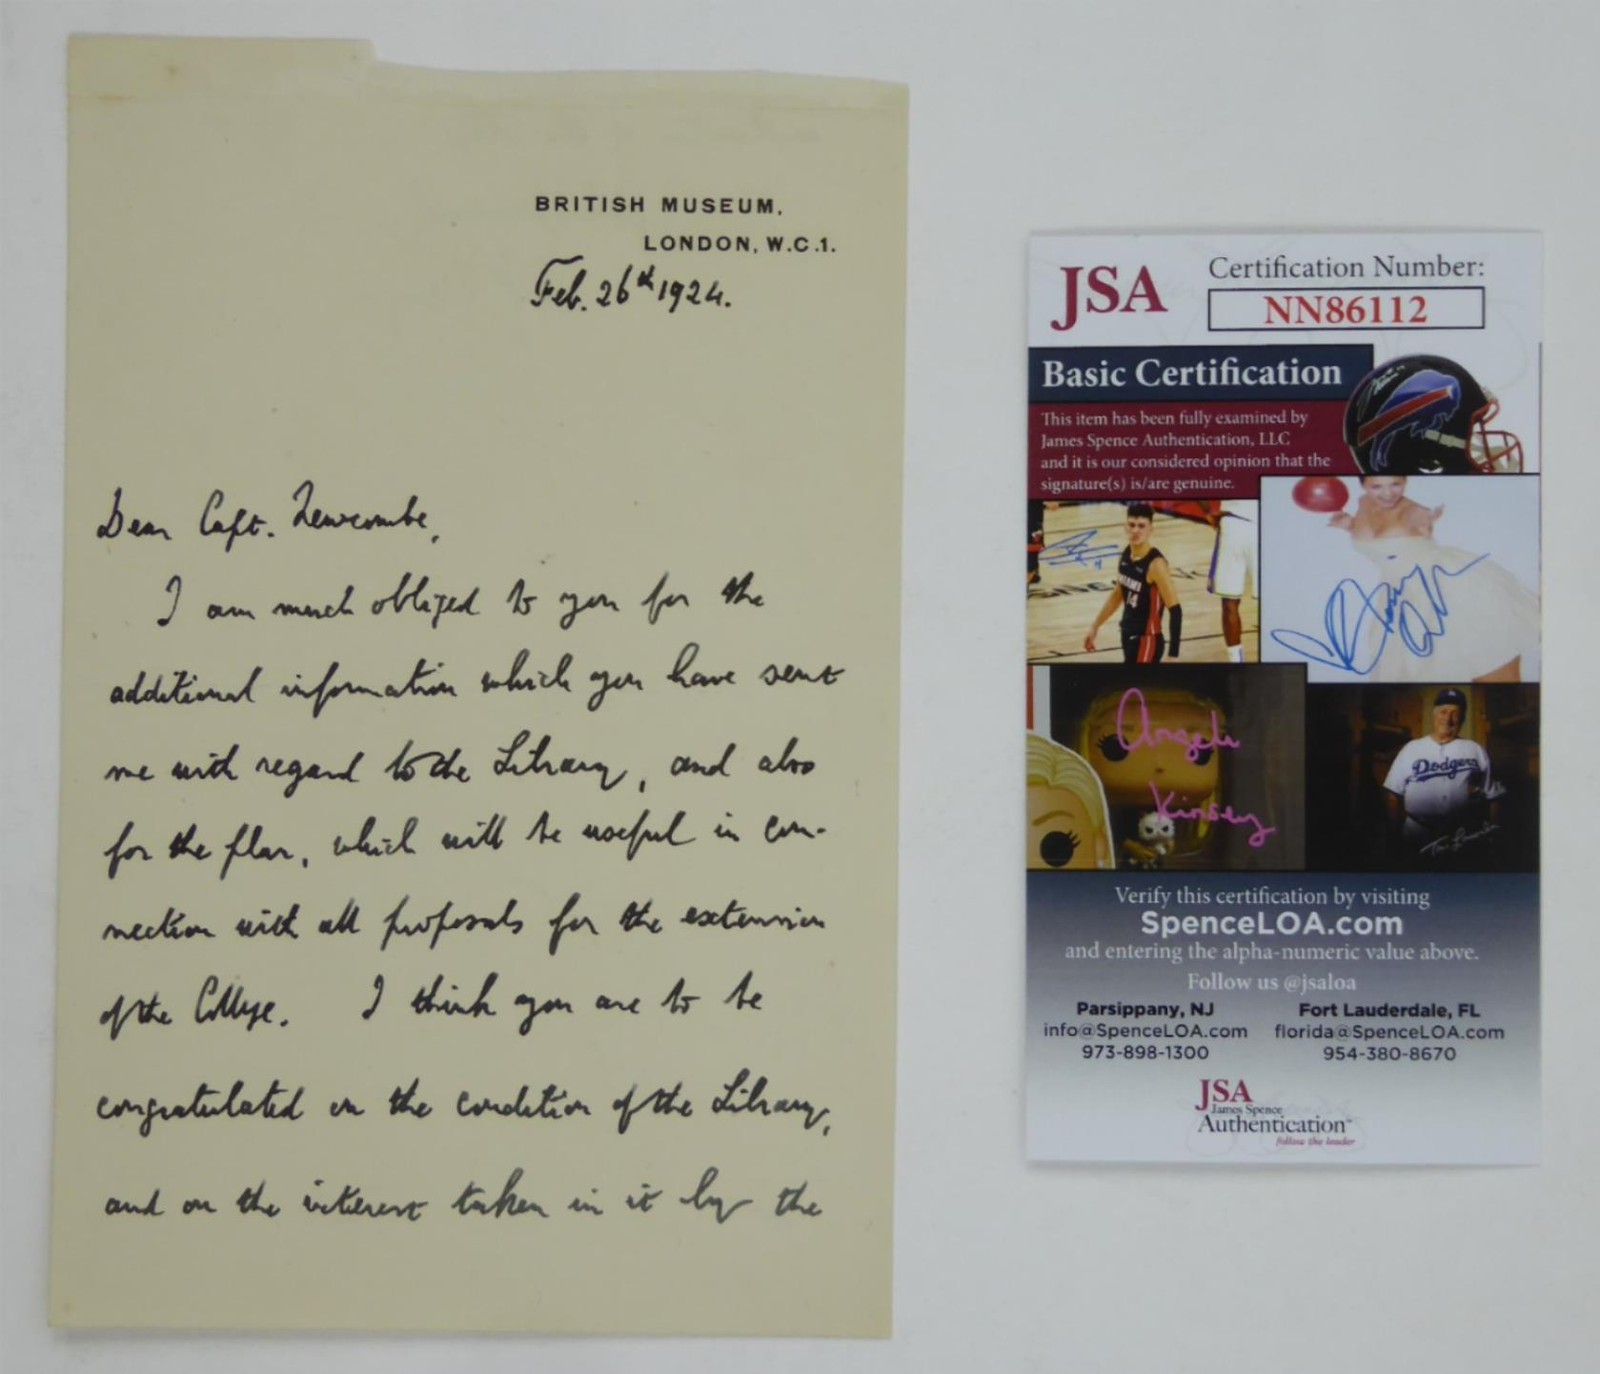 BRITISH MUSEUM,
LONDON, W.C.1.
Feb. 26th 1924.
Dear Capt. Newcombe,
I am much obliged to you for the
additional information which you have sent
me with regard to the Library, and also
for the plan, which will be useful in con-
nection with all proposals for the extension
of the College. I think you are to be
congratulated on the condition of the Library,
and on the interest taken in it by the
JSA
Certification Number:
NN86112
Basic Certification
This item has been fully examined by
James Spence Authentication, LLC
and it is our considered opinion that the
signature(s) is/are genuine.
MIAMI
14
Angela
Kinsey
Dodgers
Verify this certification by visiting
SpenceLOA.com
and entering the alpha-numeric value above.
Follow us @jsaloa
Parsippany, NJ
info@SpenceLOA.com
973-898-1300
Fort Lauderdale, FL
florida@SpenceLOA.com
954-380-8670
JSA
James Spence
Authentication
follow the leader